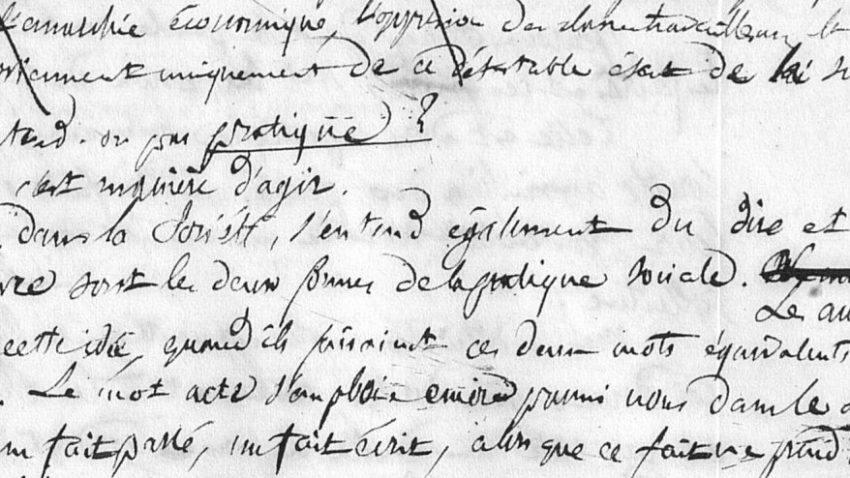 l'anarchie économique, l'oppression des classes travailleuses, et
viennent uniquement de ce détestable état de la
tend-on par pratique ?
c'est manière d'agir.
dans la Société, s'entend également du dire et
sont les deux formes de la pratique sociale.
Les
cette idée, quand ils faisaient ces deux mots équivalents
. Le mot acte s'emploie encore parmi nous dans le
un fait parlé, un fait écrit, alors que ce fait ne prend